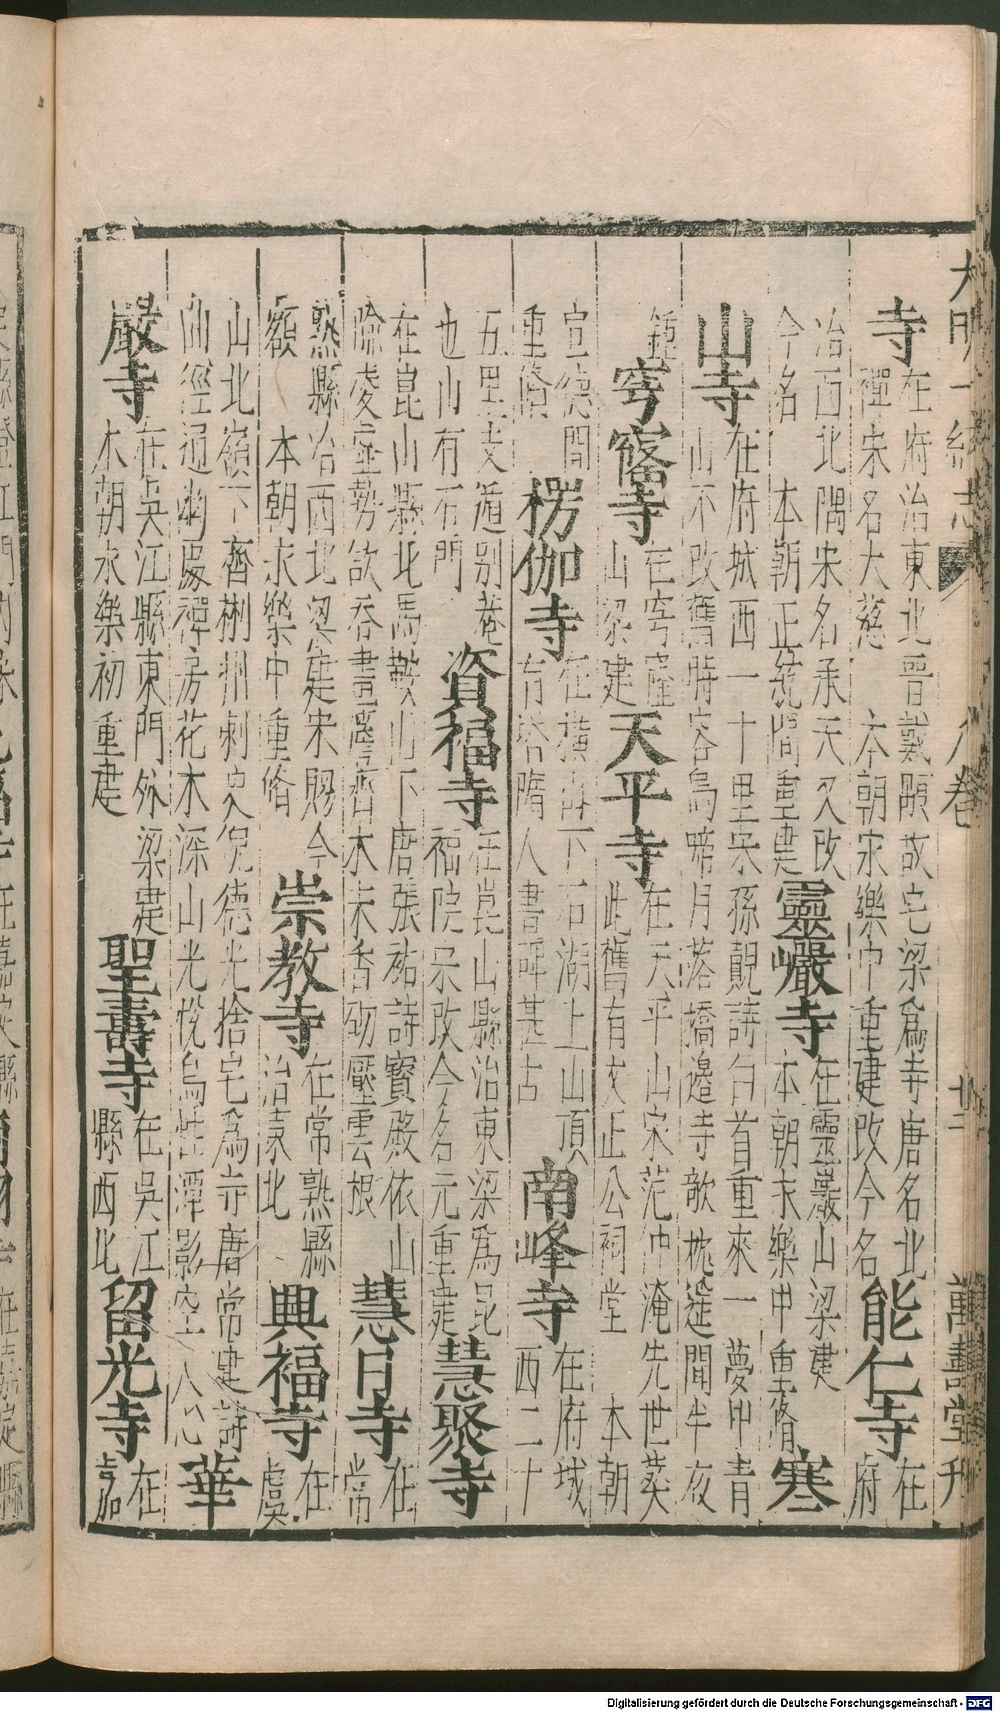 大明一統志 八卷 廿二 萬壽堂刊
寺在府治東北晉戴顒故宅梁為寺唐名北禪宋名大慈 本朝永樂中重建改今名能仁寺在府
治西北隅宋名承天又改今名 本朝正統間重建靈巖寺在靈巖山梁建 本朝永樂中重脩寒
山寺在府城西一十里宋孫覿詩白首重來一夢中青山不改舊時容烏啼月落橋邊寺欹枕遥聞半夜
鍾穹窿寺在穹窿山梁建天平寺在天平山宋范仲淹先世葬此舊有文正公祠堂 本朝
宣德間重脩楞伽寺在橫山下石湖上山頂有塔隋人書碑甚古南峰寺在府城西二十
五里支遁别菴也山有石門資福寺在崑山縣治東梁為昆福院宋改今名元重建慧聚寺
在崑山縣北馬鞍山下 唐張祐詩寳殿依山嶮凌空勢欲吞畫簷齊木末香砌壓雲根慧日寺在常
熟縣治西北梁建宋賜今額 本朝永樂中重脩崇教寺在常熟縣治東北興福寺在虞
山北嶺下齊郴州刺史倪德光捨宅為寺唐常建詩曲徑通幽處禪房花木深山光悅鳥性潭影空人心華
嚴寺在吳江縣東門外梁建 本朝永樂初重建聖壽寺在吳江縣西北留光寺在嘉
Digitalisierung gefördert durch die Deutsche Forschungsgemeinschaft - DFG